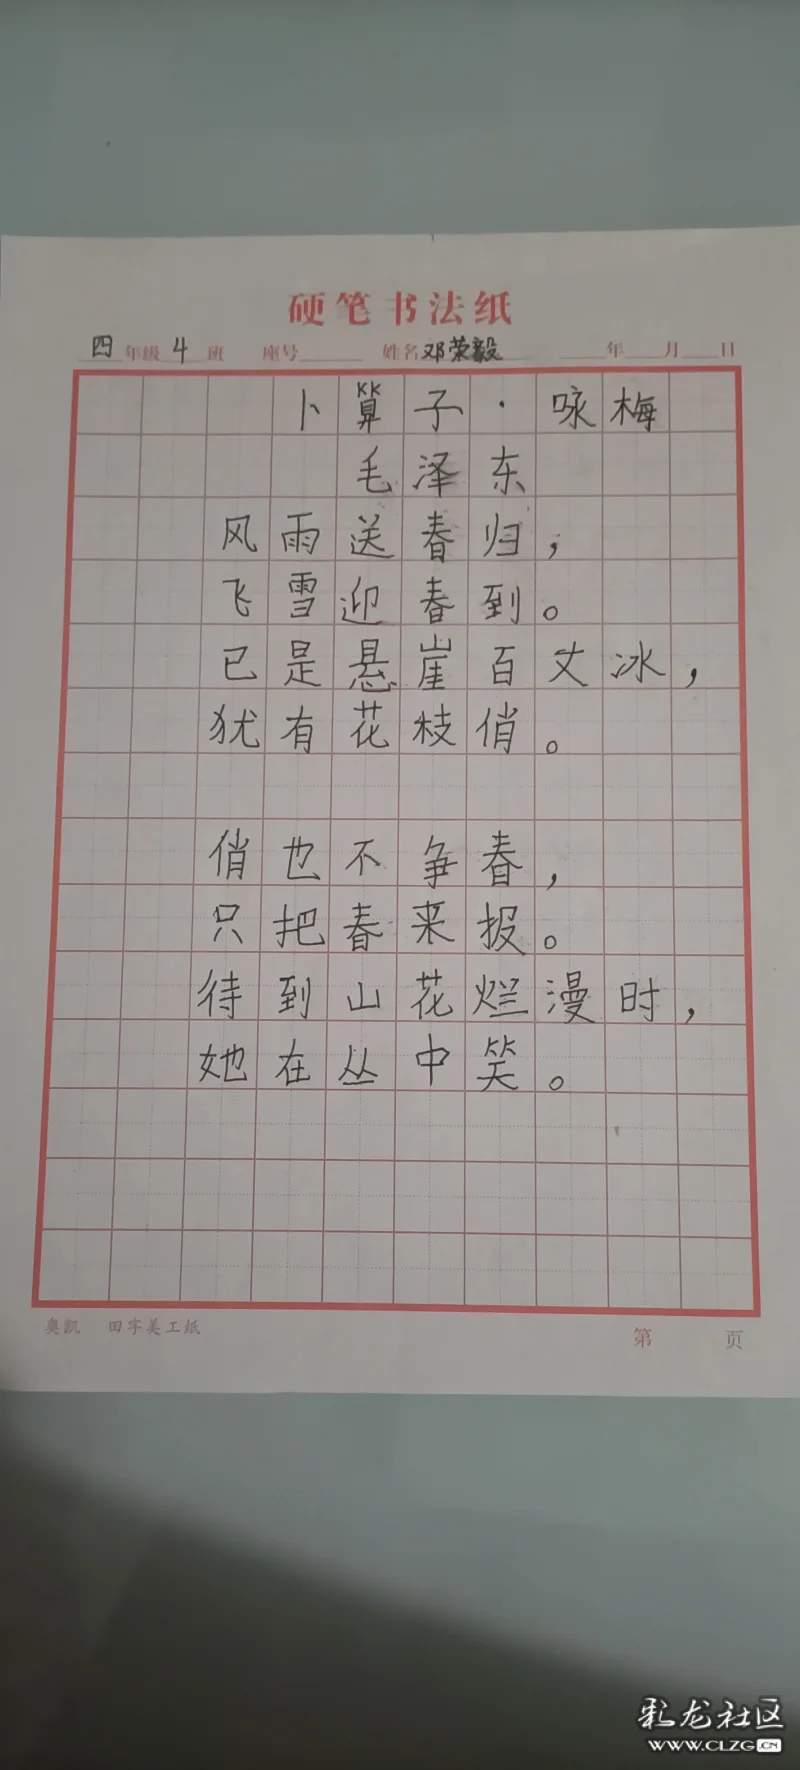 硬笔书法纸
四年级4班 座号 姓名邓荣毅 年 月 日
卜算子·咏梅
毛泽东
风雨送春归，
飞雪迎春到。
已是悬崖百丈冰，
犹有花枝俏。
俏也不争春，
只把春来报。
待到山花烂漫时，
她在丛中笑。
奥凯 田字美工纸 第 页
彩龙社区
WWW.CLZG.CN